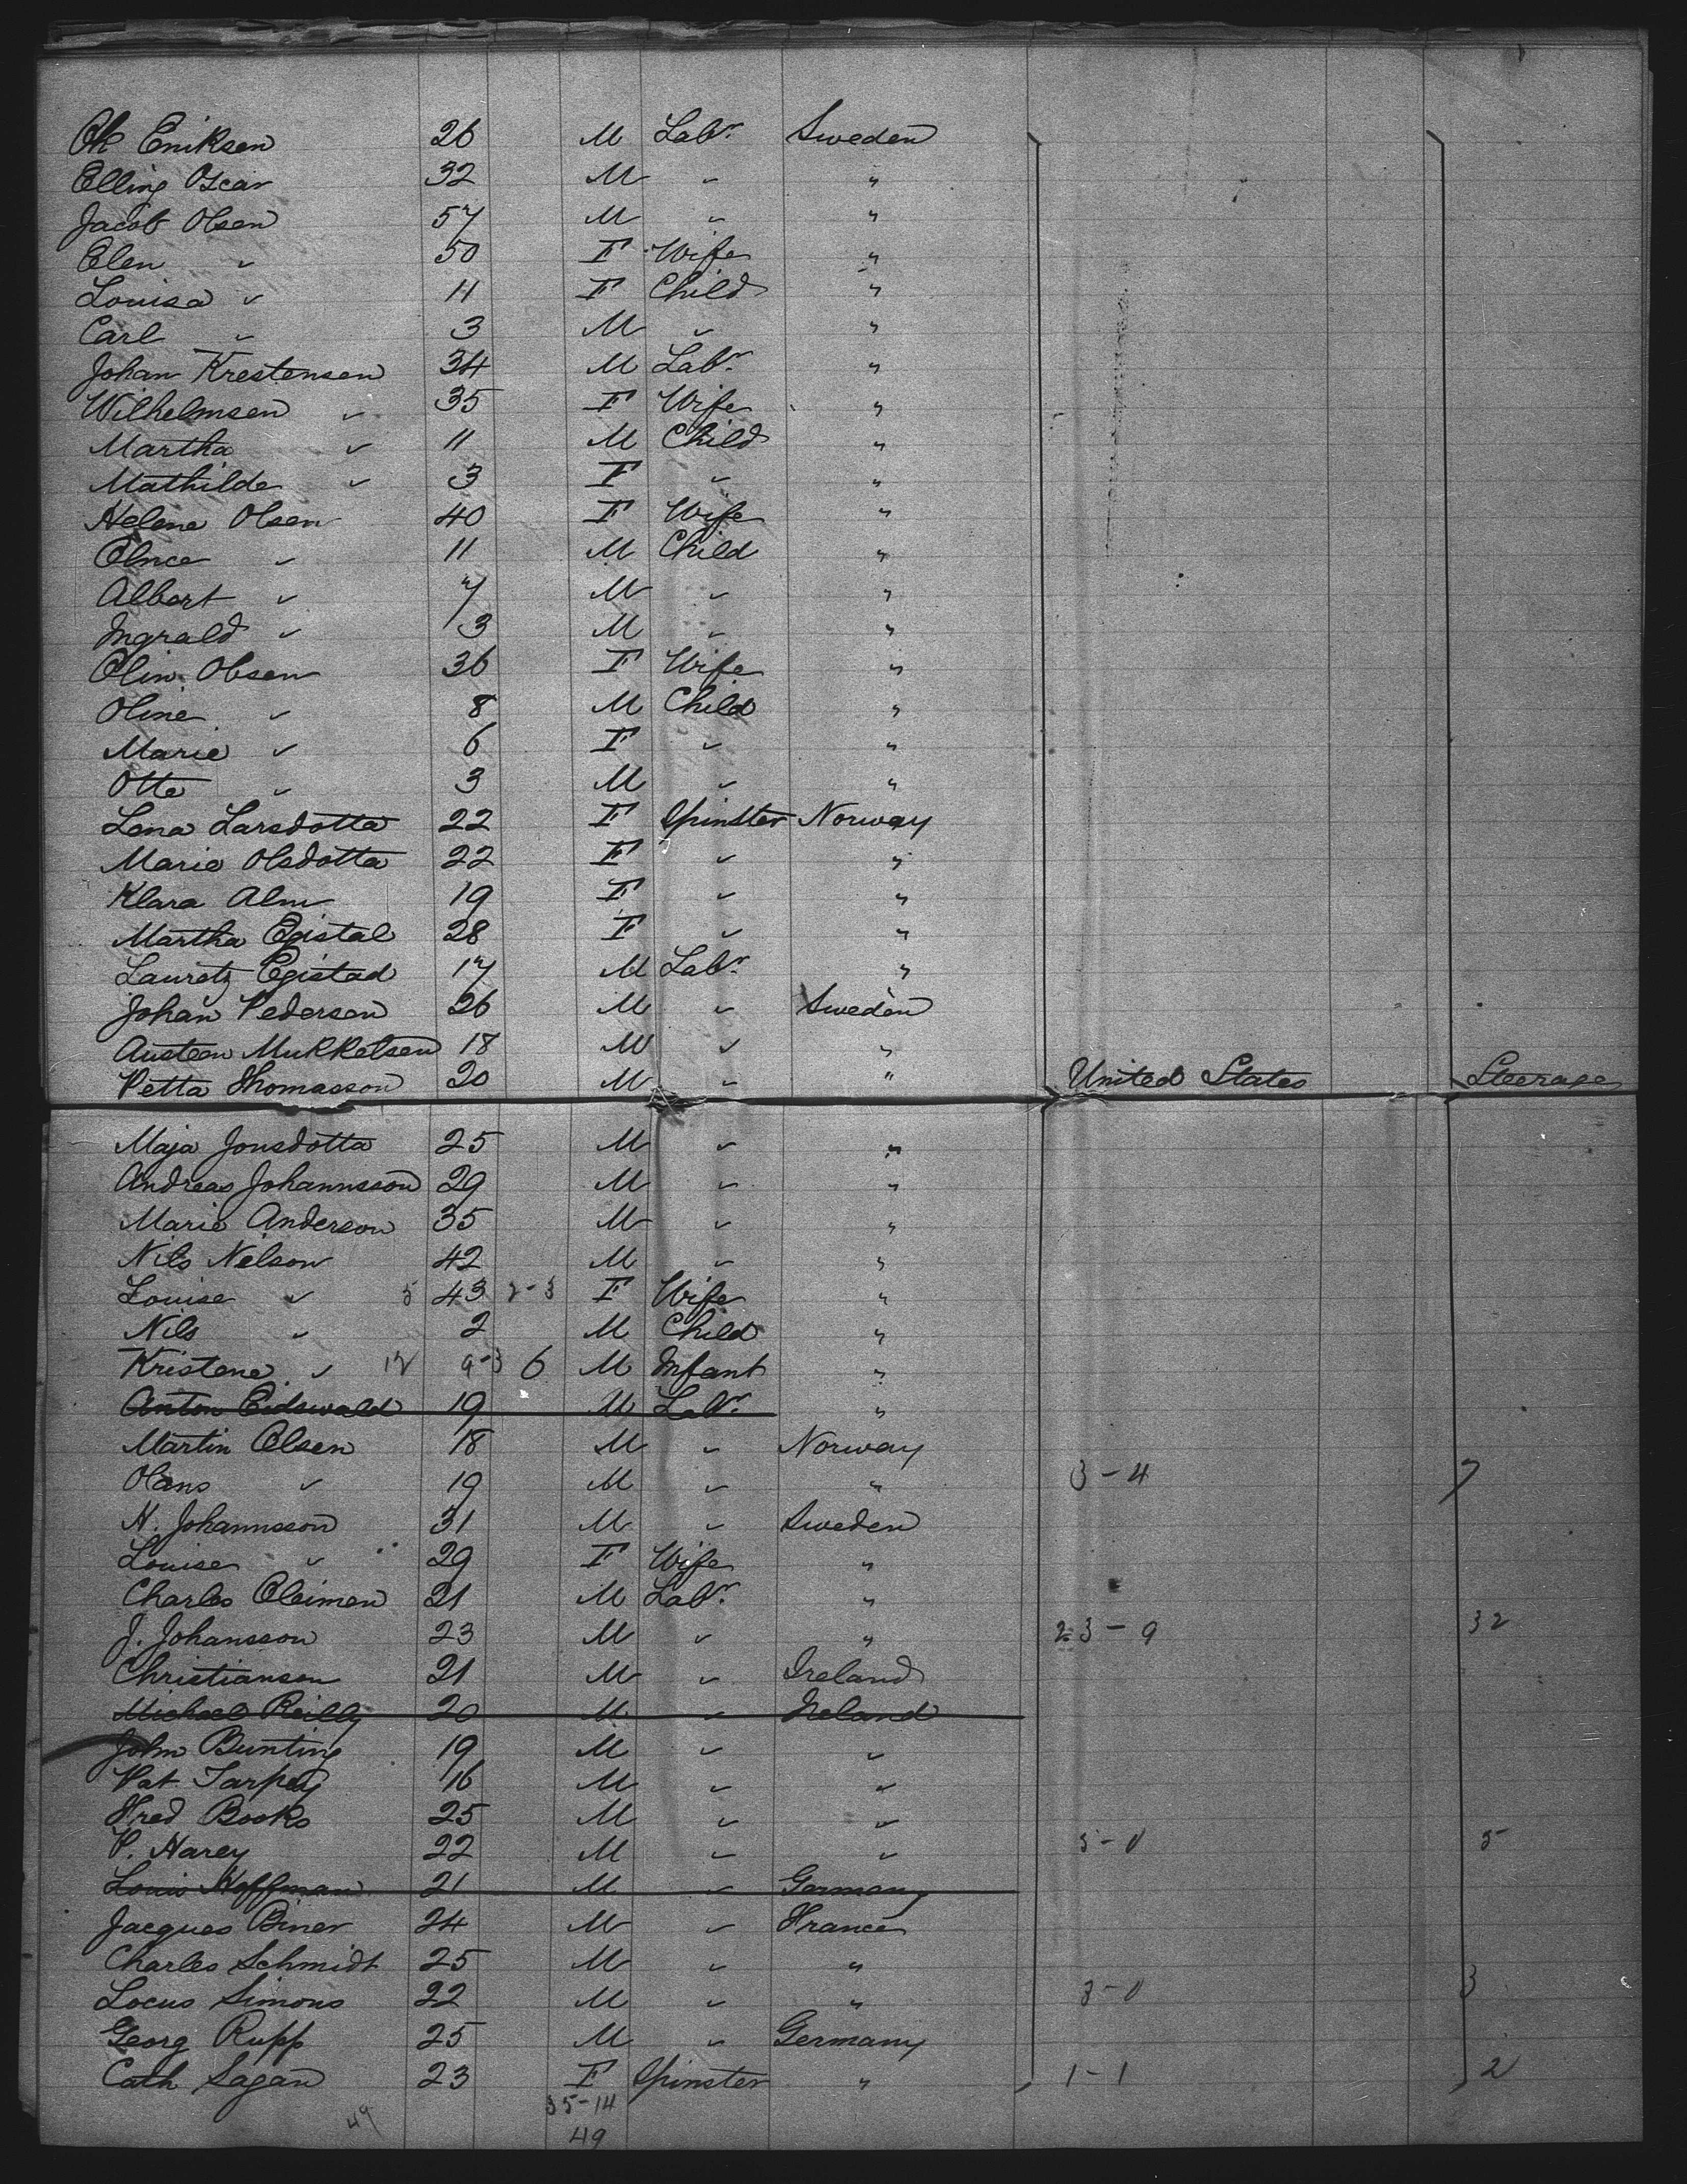 Ok Eriksen 26 M Labr. Sweden
Elling Oscar 32 M " "
Jacob Olsen 57 M " "
Elen " 50 F Wife "
Louisa " 11 F Child "
Carl " 3 M " "
Johan Krestensen 34 M Labr. "
Wilhelmsen " 35 F Wife "
Martha " 11 M Child "
Mathilde " 3 F " "
Helene Olsen 40 F Wife "
Elnce " 11 M Child "
Albert " 7 M " "
Ingrald " 3 M " "
Olin Olsen 36 F Wife "
Oline " 8 M Child "
Marie " 6 F " "
Otto " 3 M " "
Lena Larsdotta 22 F Spinster Norway
Marie Olsdotta 22 F " "
Klara Alm 19 F " "
Martha Egistal 28 F " "
Lauretz Egistad 17 M Labr. "
Johan Pedersen 26 M " Sweden
Austeen Mukkelsen 18 M " "
Petta Thomasson 20 M " " United States Steerage
Maja Jonsdotta 25 M " "
Andreas Johannsson 29 M " "
Marie Anderson 35 M " "
Nils Nelson 42 M " "
Louise " 5 43 2-3 F Wife "
Nils " 2 M Child "
Kristene " 12 9-3 6 M Infant "
Anton Eidswald 19 M Labr. "
Martin Olsen 18 M " Norway
Olans " 19 M " " 3-4 7
H. Johannsson 31 M " Sweden
Louise " 29 F Wife "
Charles Oleimen 21 M Labr. "
J. Johansson 23 M " " 23-9 32
Christiansen 21 M " Ireland
Michael Reilly 20 M " Ireland
John Bunting 19 M " "
Pat Tarpey 16 M " "
Fred Books 25 M " "
P. Harey 22 M " " 5-0 5
Louis Hoffman 21 M " Germany
Jacques Biner 24 M " France
Charles Schmidt 25 M " "
Locus Simons 22 M " " 3-0 3
Georg Rupp 25 M " Germany
Cath Sagan 23 F Spinster " 1-1 2
35-14
49 49